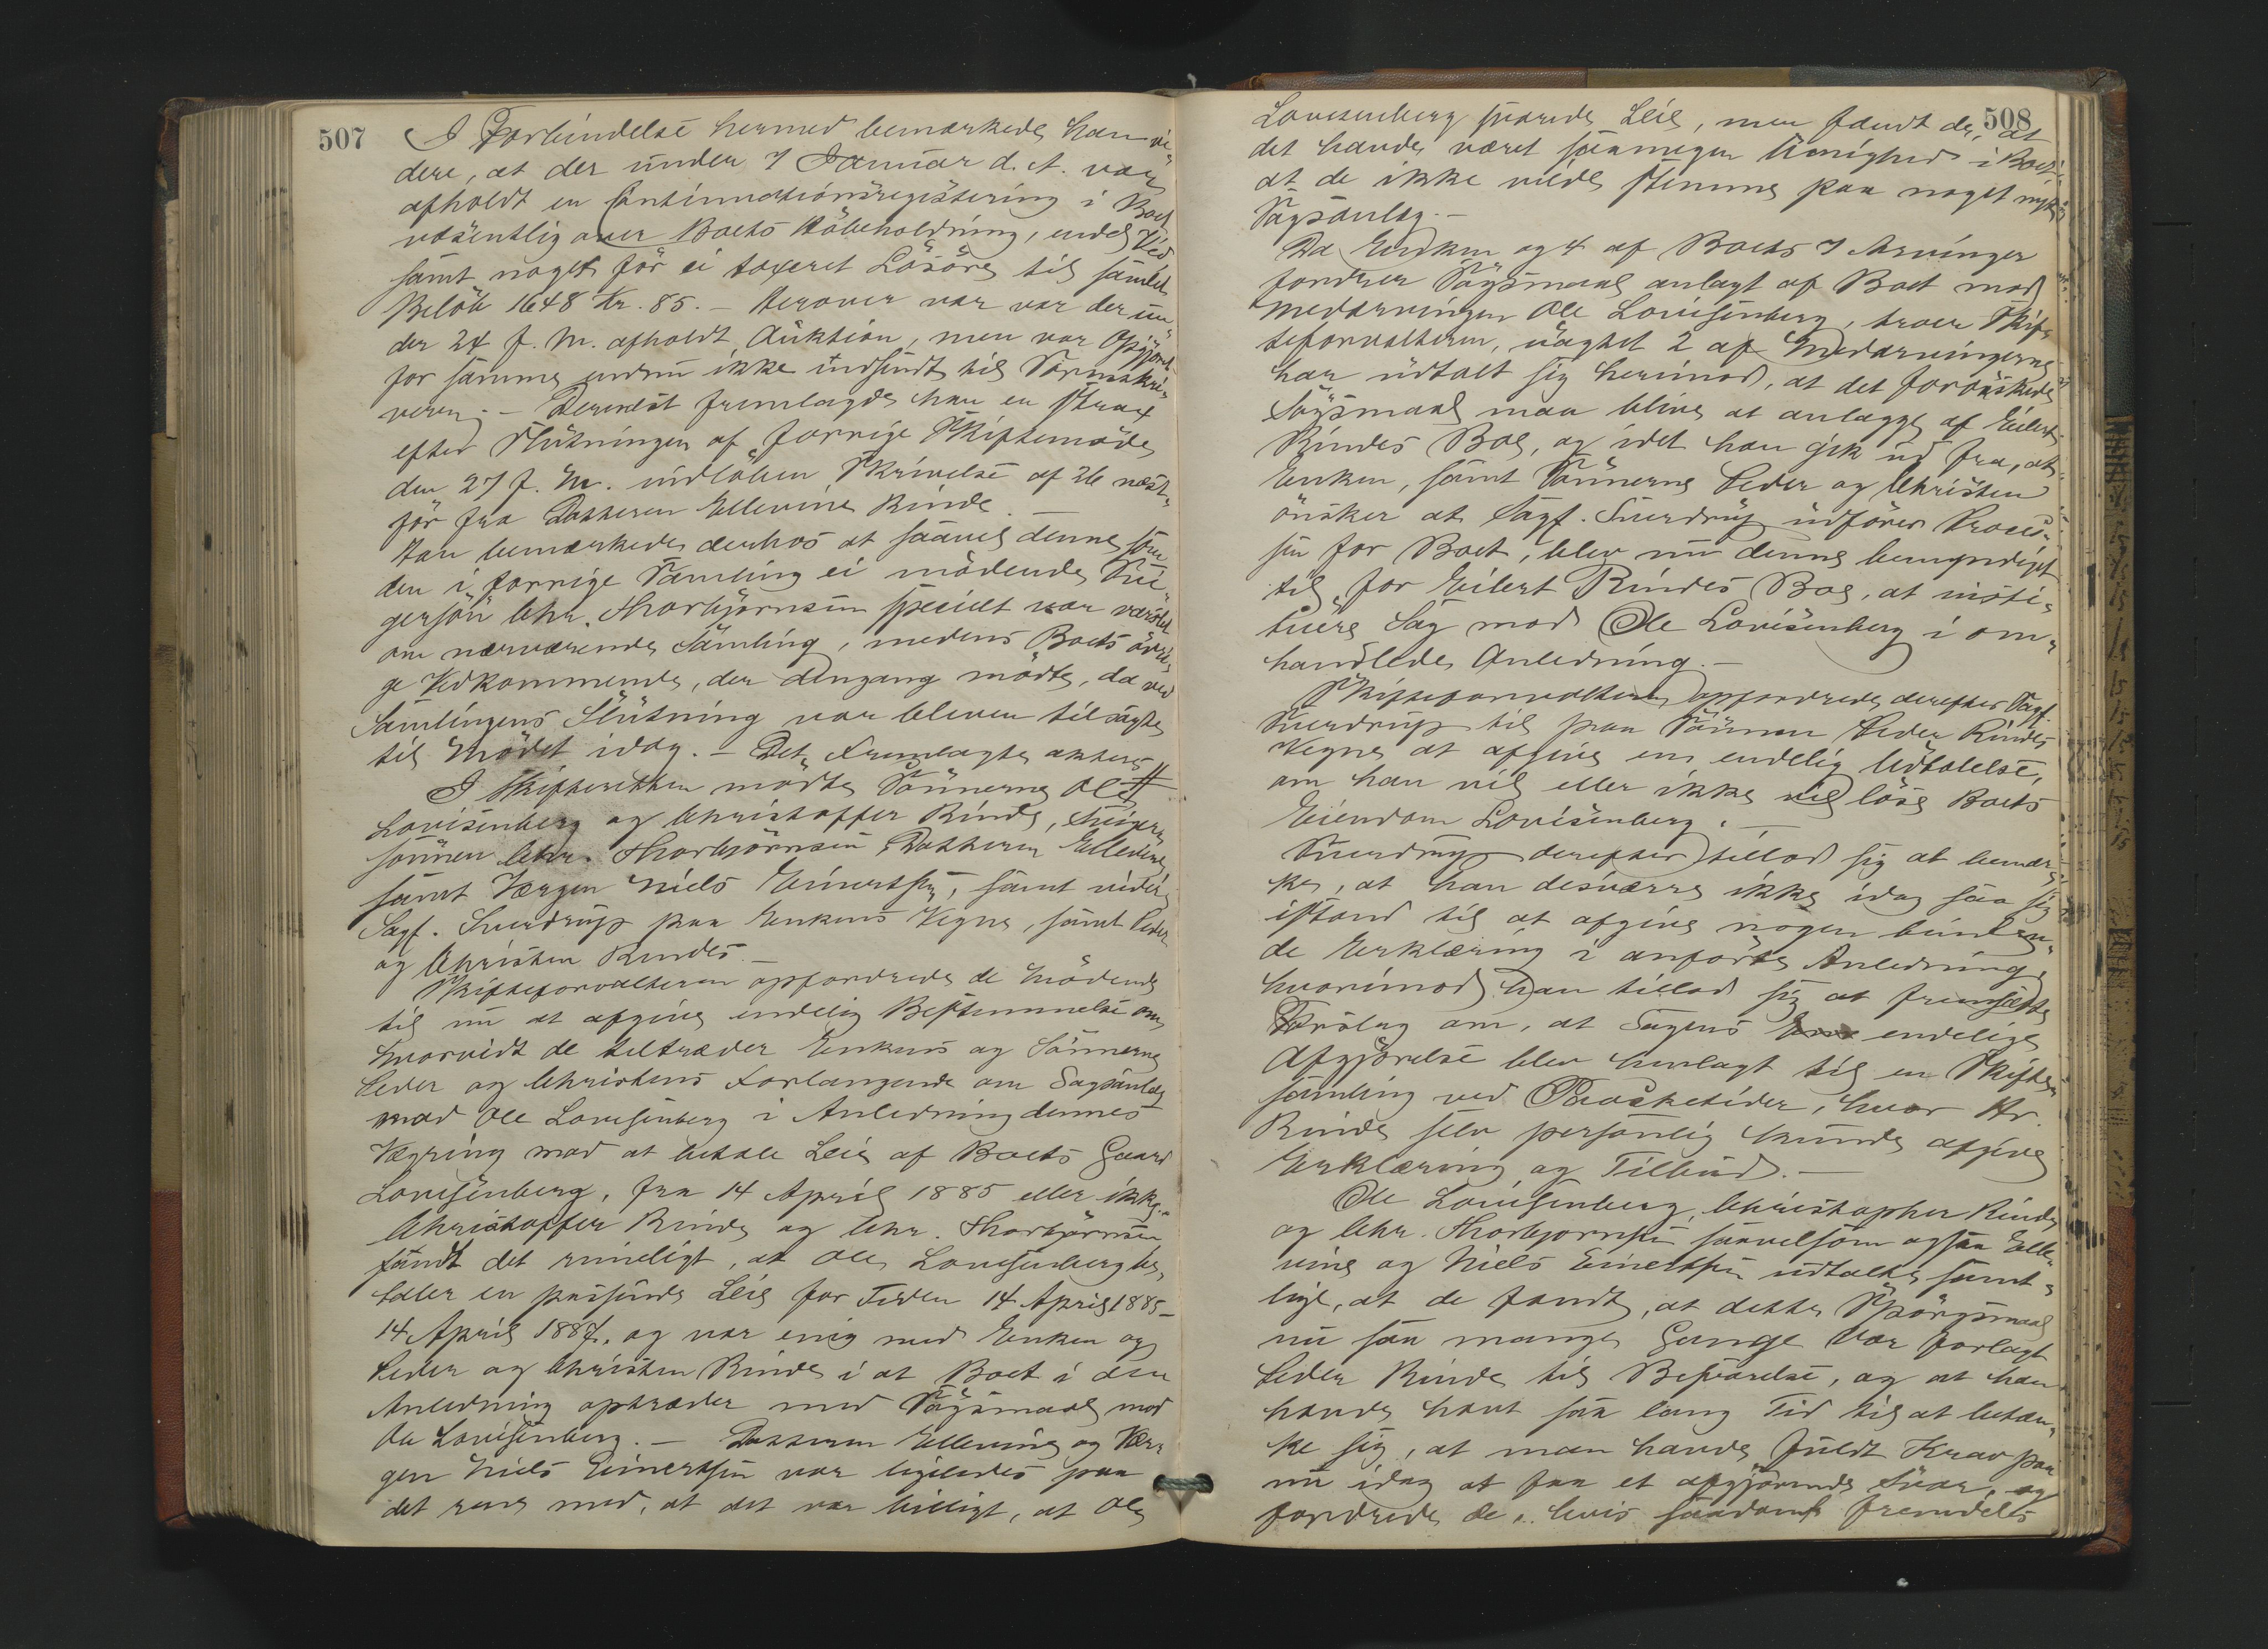 507
I Forbindelse hermed bemærkede han vi-
dere, at der under 7 Januar d. A. var
afholdt en Continuationsregistering i Boet
væsentlig over Boets Höbeholdning, endel Ved
samt noget för ei taxeret Lösöre til samlet
Belöb 1648 Kr. 85. – Herover var var der un-
der 24 f. M. afholdt Auktion, men var Opgjöret
for samme endnu ikke indsendt til Sorenskri-
veren. – Dernæst fremlagde han en strax
efter Slutningen af forrige Skiftemöde
den 27 f. M. indlöben Skrivelse af 26 næst-
för fra Datteren Ellevine Rinde. –
Han bemærkede derhos at saavel denne som
den i forrige Samling ei mödende Svi-
gersön Chr. Thorbjörnsen specielt var varslet
om nærværende Samling, medens Boets övri-
ge Vedkommende, der dengang mödte, da ved
Samlingens Slutning var bleven tilsagte
til Mödet idag. – Det Fremlagte akteres #
I Skifteretten mödte Sönnerne Ole
Lovisenberg og Christoffer Rinde, Sviger-
sönnen Chr. Thorbjörnsen, Datteren Ellevine
samt Værgen Niels Einertsen, samt videre
Sagf. Sverdrup paa Enkens Vegne, samt Peder
og Christen Rindes. –
Skifteforvalteren opfordrede de Mödende
til nu at afgive endelig Bestemmelse om,
hvorvidt de tiltræder Enkens og Sönnerne
Peder og Christens Forlangende om Sagsanlæg
mod Ole Lovisenberg i Anledning dennes
Vægring mod at betale Leie af Boets Gaard
Lovisenberg, fra 14 April 1885 eller ikke. –
Christoffer Rinde og Chr. Thorbjörnsen
fandt det rimeligt, at Ole Lovisenberg be-
taler en passende Leie for Tiden 14 April 1885 –
14 April 1887, og var enig med Enken og
Peder og Christen Rinde i at Boet i den
Anledning optræder med Sagsmaal mod
Ole Lovisenberg. – Datteren Ellevine og Vær-
gen Niels Einertsen var ligeledes paa
det rene med, at det var billigt, at Ole
508
Lovisenberg svarede Leie, men fandt de, at
det havde været saamegen Uenighed i Boet,
at de ikke vilde stemme paa noget nyt
Sagsanlæg. –
Da Enken og 4 af Boets 7 Arvinger
fordrer Sagsmaal anlagt af Boet mod
Medarvingen Ole Lovisenberg, troer Skif-
teforvalteren, uagtet 2 af Medarvingerne
har udtalt sig herimod, at det forönskede
Sagsmaal maa blive at anlægge af Eilert
Rindes Bo, og idet han gik ud fra, at
Enken, samt Sönnerne Peder og Christen
önsker at Sagf. Sverdrup udförer Proces-
sen for Boet, blev nu denne bemyndiget
til, for Eilert Rindes Bo, at insti-
tuere Sag mod Ole Lovisenberg i om-
handlede Anledning. –
Skifteforvalteren opfordrede derefter Sagf.
Sverdrup til paa Sönnen Peder Rindes
Vegne at afgive en endelig Udtalelse,
om han vil eller ikke vil löse Boets
Eiendom Lovisenberg. –
Sverdrup derefter tillod sig at bemær-
ke, at han desværre ikke idag saa sig
istand til at afgive nogen binden-
de Erklæring i anförte Anledning,
hvorimod han tillod sig at fremsætte
Forslag om, at Sagens endelige
Afgjörelse blev henlagt til en Skifte-
samling ved Paasketider, hvor Hr.
Rinde selv personlig kunde afgive
Erklæring og Tilbud. –
Ole Lovisenberg, Christopher Rinde
og Chr. Thorbjornsen saavelsom ogsaa Elle-
vine og Niels Einertsen udtalte samt-
lige, at de fandt, at dette Spörgsmaal
nu saa mange Gange var forlagt
Peder Rinde til Besvarelse, og at han
havde havt saa lang Tid til at betæn-
ke sig, at man havde fuldt Krav paa
nu idag at faa et afgjörende Svar, og
fordrede de, hvis saadant fremdeles